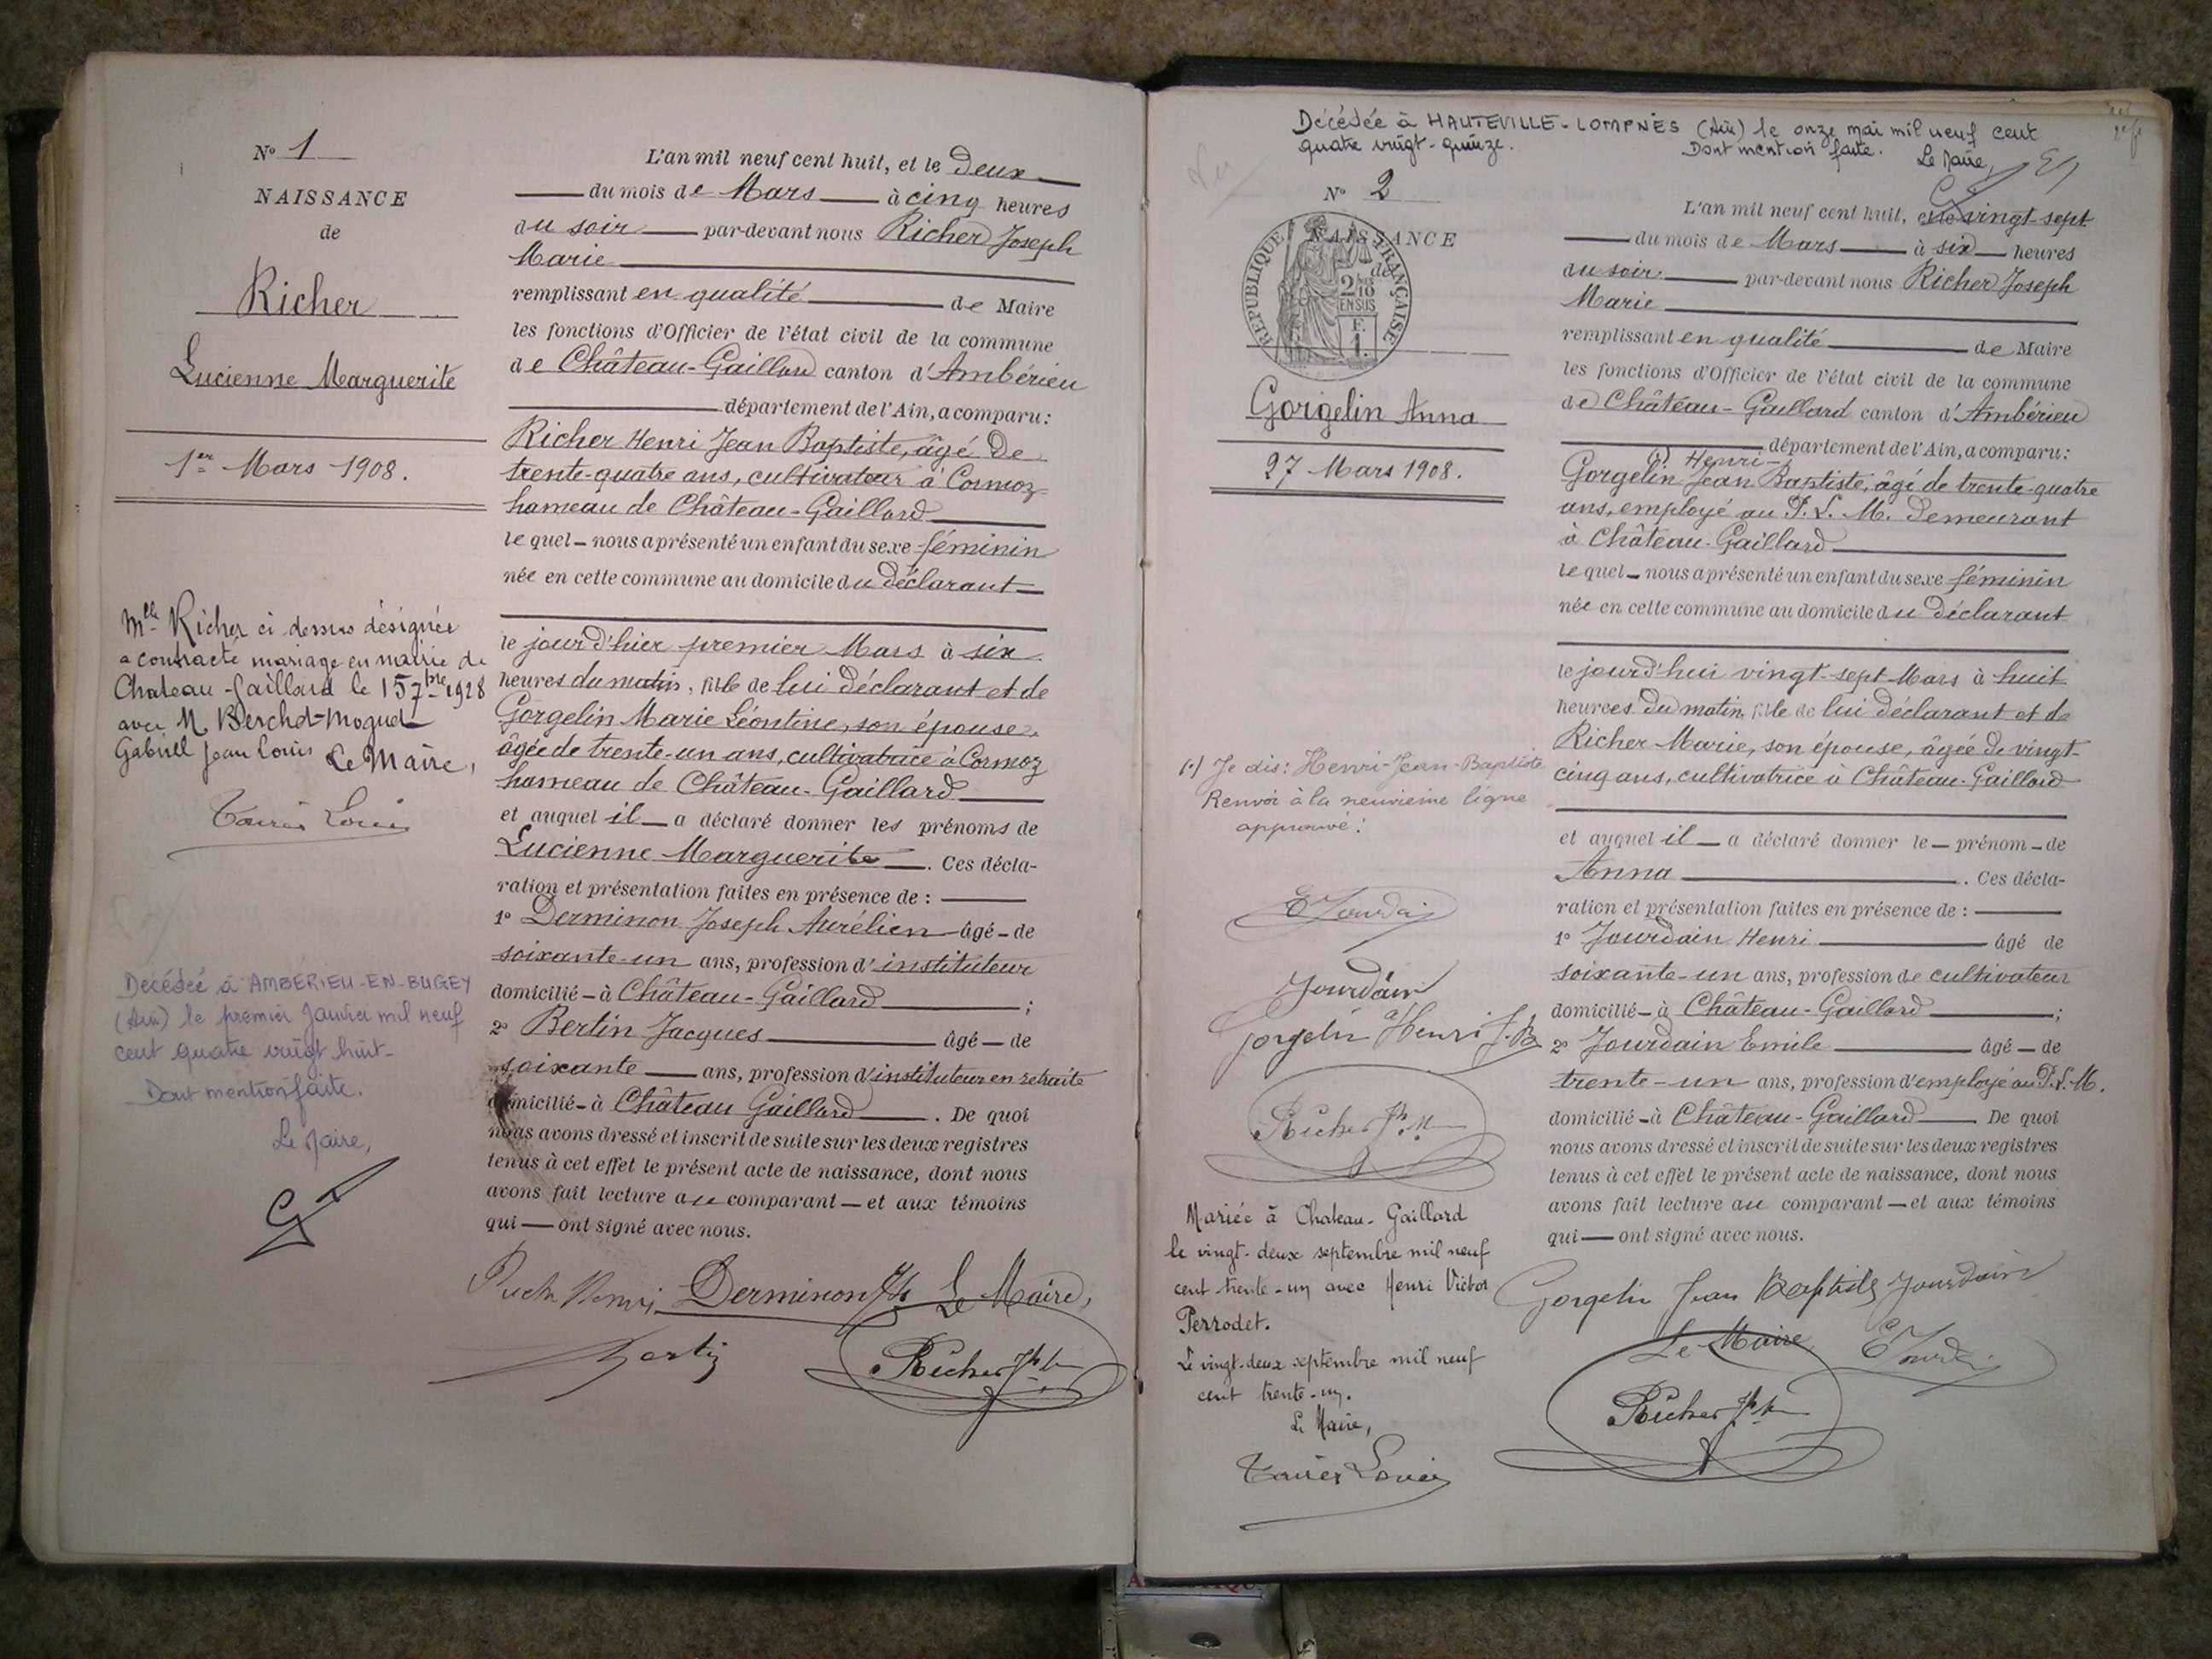 N° 1
NAISSANCE
de
Richer
Lucienne Marguerite
1er Mars 1908.
Mlle Richer ci dessus désignée
a contracté mariage en mairie de
Chateau-Gaillard le 15 7bre 1928
avec M. Berchet-Moguet
Gabriel Jean Louis Le Maire,
Décédée à AMBERIEU-EN-BUGEY
(Ain) le premier Janvier mil neuf
cent quatre vingt huit-
Dont mention faite.
Le Maire,
L'an mil neuf cent huit, et le deux
du mois de Mars à cinq heures
du soir par-devant nous Richer Joseph
Marie
remplissant en qualité de Maire
les fonctions d'Officier de l'état civil de la commune
de Château-Gaillard canton d'Ambérieu
département de l'Ain, a comparu:
Richer Henri Jean Baptiste, âgé de
trente-quatre ans, cultivateur à Cormoz
hameau de Château-Gaillard
lequel nous a présenté un enfant du sexe féminin
née en cette commune au domicile du déclarant
le jourd'hier premier Mars à six
heures du matin, fille de lui déclarant et de
Gorgelin Marie Léontine, son épouse,
âgée de trente-un ans, cultivatrice à Cormoz
hameau de Château-Gaillard
et auquel il a déclaré donner les prénoms de
Lucienne Marguerite. Ces décla-
ration et présentation faites en présence de :
1° Derminon Joseph Aurélien âgé de
soixante-un ans, profession d'instituteur
domicilié à Château-Gaillard ;
2° Bertin Jacques âgé de
soixante ans, profession d'instituteur en retraite
domicilié à Château Gaillard. De quoi
nous avons dressé et inscrit de suite sur les deux registres
tenus à cet effet le présent acte de naissance, dont nous
avons fait lecture au comparant et aux témoins
qui ont signé avec nous.
Henri Derminon Jh Le Maire,
Bertin Richer Jh
Décédée à HAUTEVILLE-LOMPNES (Ain) le onze mai mil neuf cent
quatre vingt-quinze. Dont mention faite. Le Maire,
N° 2
NAISSANCE
de
RÉPUBLIQUE FRANÇAISE
2/10
EN SUS
F.
1.
Gorgelin Anna
27 Mars 1908.
(1) Je dis: Henri-Jean-Baptiste
Renvoi à la neuvième ligne
approuvé:
E Jourdain
Jourdain
Gorgelin Henri J.B.
Richer Jh M
Mariée à Chateau-Gaillard
le vingt-deux septembre mil neuf
cent trente-un avec Henri Victor
Perrodet.
Le vingt-deux septembre mil neuf
cent trente-un.
Le Maire,
L'an mil neuf cent huit, et le vingt-sept
du mois de Mars à six heures
du soir par-devant nous Richer Joseph
Marie
remplissant en qualité de Maire
les fonctions d'Officier de l'état civil de la commune
de Château-Gaillard canton d'Ambérieu
département de l'Ain, a comparu:
(1) Henri
Gorgelin Jean Baptiste, âgé de trente-quatre
ans, employé au P. L. M. demeurant
à Château-Gaillard
lequel nous a présenté un enfant du sexe féminin
née en cette commune au domicile du déclarant
le jourd'hui vingt-sept Mars à huit
heures du matin, fille de lui déclarant et de
Richer Marie, son épouse, âgée de vingt-
cinq ans, cultivatrice à Château-Gaillard
et auquel il a déclaré donner le prénom de
Anna. Ces décla-
ration et présentation faites en présence de :
1° Jourdain Henri âgé de
soixante-un ans, profession de cultivateur
domicilié à Château-Gaillard ;
2° Jourdain Emile âgé de
trente-un ans, profession d'employé au P.L.M.
domicilié à Château-Gaillard De quoi
nous avons dressé et inscrit de suite sur les deux registres
tenus à cet effet le présent acte de naissance, dont nous
avons fait lecture au comparant et aux témoins
qui ont signé avec nous.
Gorgelin Jean Baptiste Jourdain
Le Maire, E Jourdain
Richer Jh M